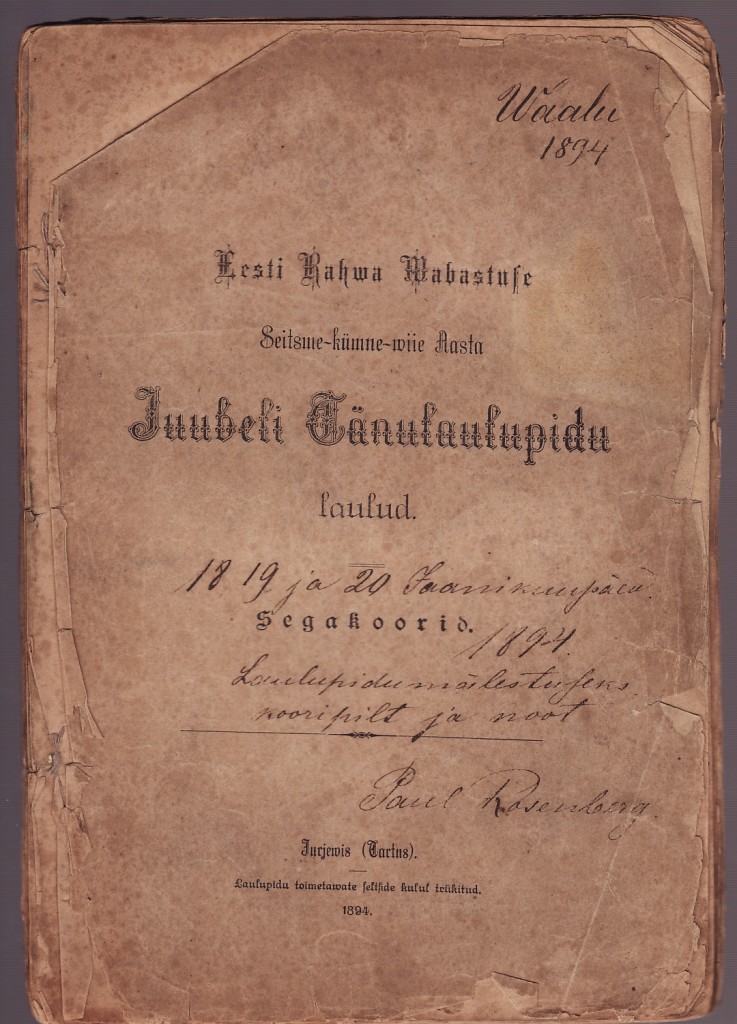 Wäalu
1894
Eesti Rahwa Wabastuse
Seitsme-kümne-wiie Aasta
Juubeli Tänulaulupidu
laulud.
18 19 ja 20 Jaanikuupäew.
Segakoorid.
1894.
Laulupidu mälestuseks
kooripilt ja noot
Paul Rosenberg.
Jurjewis (Tartus).
Laulupidu toimetawate seltside kulul trükitud.
1894.